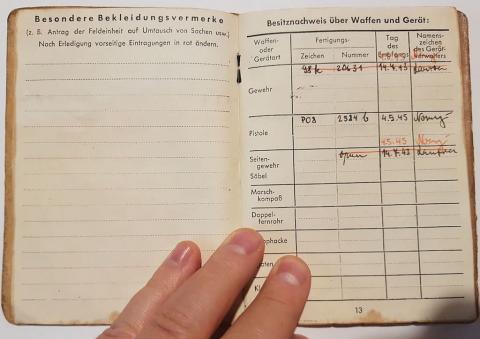 Besondere Bekleidungsvermerke
(z. B. Antrag der Feldeinheit auf Umtausch von Sachen usw.)
Nach Erledigung vorseitige Eintragungen in rot ändern.
Besitznachweis über Waffen und Gerät:
Waffen-
oder
Gerätart
Fertigungs-
Zeichen
Nummer
Tag
des
Empfangs
Namens-
zeichen
des Gerät-
verwalters
Gewehr
98k
20631
14.4.43
Pistole
P08
2524 b
4.5.45
4.5.45
Seiten-
gewehr
14.4.43
Säbel
Marsch-
kompaß
Doppel-
fernrohr
hacke
13